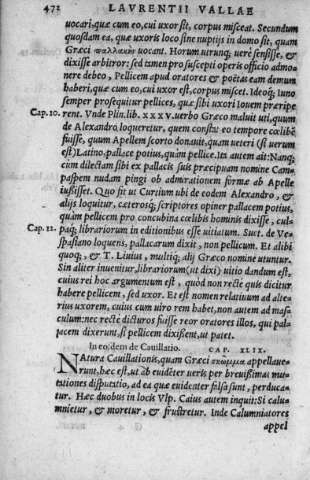 472 LAVRENTII VALLAE
uocari, quæ cum eo, cui uxor sit, corpus misceat. Secundum
quosdam ea, quæ uxoris loco sine nuptijs in domo sit, quam
Græci παλλακὴν uocant. Horum utrunq; uere sensisse, &
dixisse arbitror: sed tamen pro suscepti operis officio admo-
nere debeo, Pellicem apud oratores & poëtas eam demum
haberi, quæ cum eo, cui uxor est, corpus miscet. Ideoq; Iuno
semper prosequitur pellices, quæ sibi uxori Iouem præripe
Cap.10. rent. Vnde Plin. lib. XXXV. uerbo Græco maluit uti, quum
de Alexandro loqueretur, quem constat eo tempore cœlibem
fuisse, quum Apellem scorto donauit, quam ueteri (si uerum
est) Latino. pallace potius, quàm pellice. Its autem ait: Nanq;
cum dilectam sibi ex pallacis suis præcipuam nomine Cam
paspem nudam pingi ob admirationem formæ ab Apelle
iußisset. Quo fit ut Curtium ubi de eodem Alexandro, &
alijs loquitur, cæterosq; scriptores opiner pallacem potius,
quàm pellicem pro concubina cœlibis hominis dixisse, cul-
Cap.21. paq; librariorum in editionibus esse uitiatum. Suet. de Ve-
spasiano loquens, pallacarum dixit, non pellicum. Et alibi
quoq;, & T. Liuius, multiq; alij Græco nomine utuntur.
Sin aliter inuenitur, librariorum (ut dixi) uitio dandum est,
cuius rei hoc argumentum est, quòd non recte quis dicitur
habere pellicem, sed uxor. Et est nomen relatiuum ad alte-
rius uxorem, cuius cum uiro rem habet, non autem ad mas-
culum: nec recte dicturos fuisse reor oratores illos, qui pal-
lacem dixerunt, si pellicem dixissent, ut patet.
In eodem de Cauillatio. CAP. XLIX.
NAturæ Cauillationis, quam Græci σκωμμα appellaue-
runt, hæc est, ut ab euidēter ueris per breuißimas mu-
tationes disputatio, ad ea quæ euidenter falsa sunt, perduca-
tur. Hæc duobus in locis Vlp. Caius autem inquit: Si calu-
mnietur, & moretur, & frustretur. Inde Calumniatores
appel